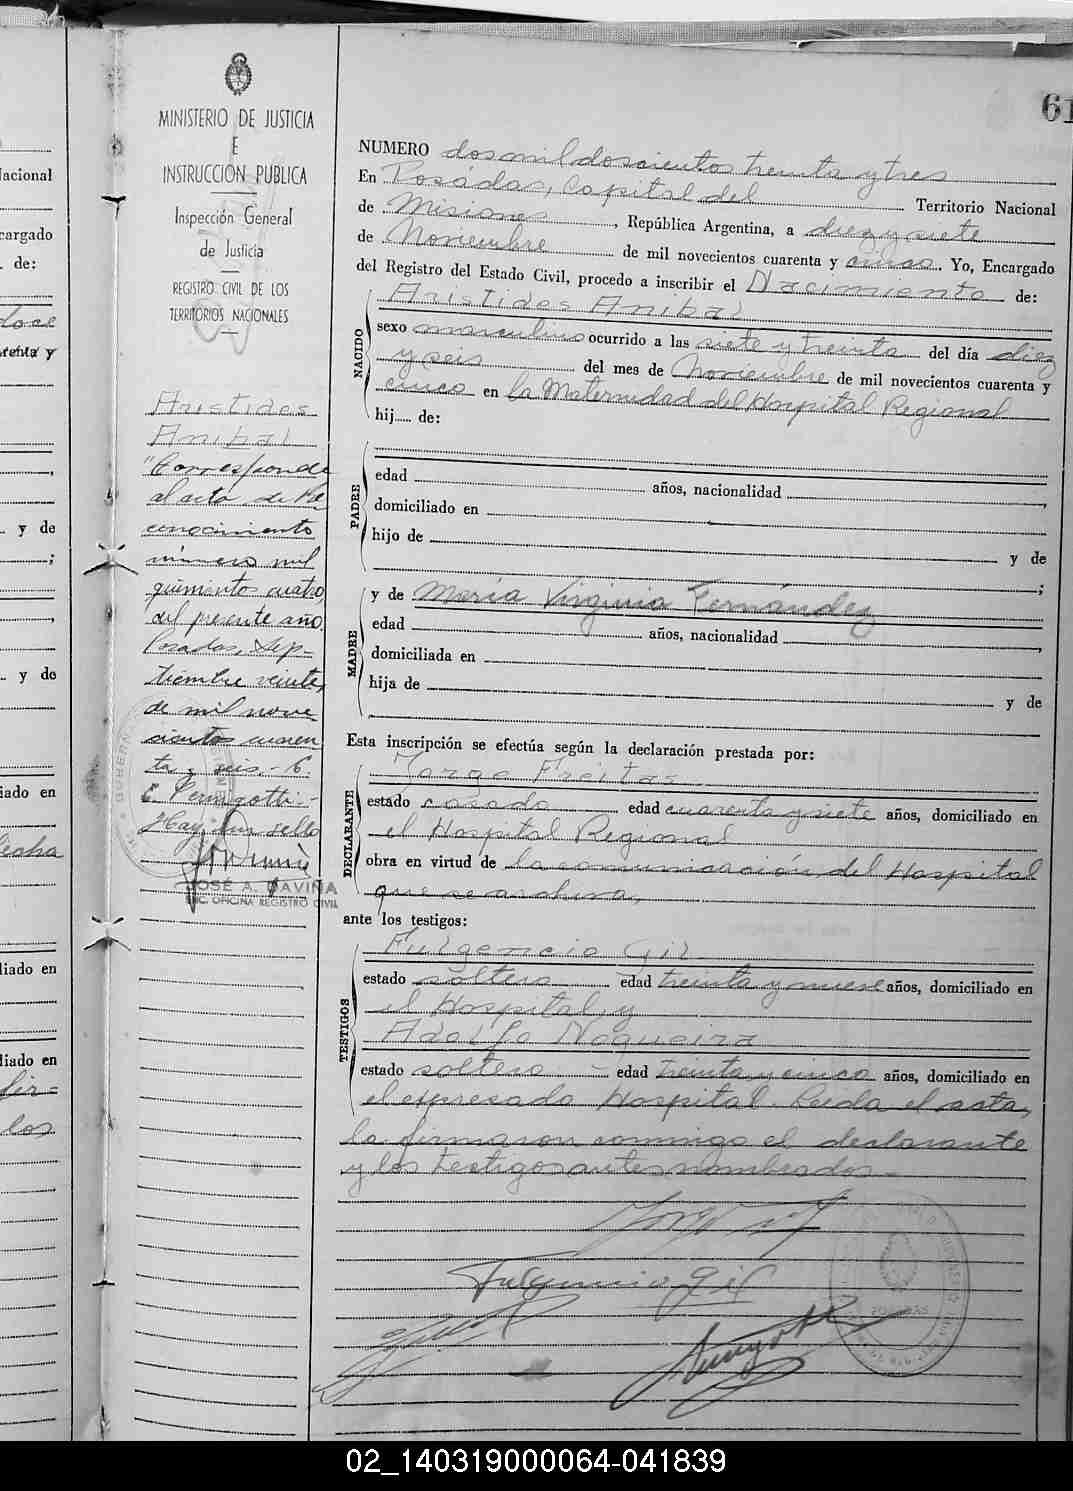 61
MINISTERIO DE JUSTICIA
E
INSTRUCCION PUBLICA
Inspección General
de Justicia
REGISTRO CIVIL DE LOS
TERRITORIOS NACIONALES
Aristides
Anibal
"Corresponde
al acta de Re
conocimiento
número mil
quinientos cuatro,
del presente año.
Posadas, Sep-
tiembre veinte,
de mil nove
cientos cuaren
ta y seis.- C.
E. Pernigotti.-
Hay un sello
JOSÉ A. DAVIÑA
ENC. OFICINA REGISTRO CIVIL
NUMERO dosmil doscientos treinta y tres
En Posadas, Capital del Territorio Nacional
de Misiones, República Argentina, a diez y siete
de Noviembre de mil novecientos cuarenta y cinco. Yo, Encargado
del Registro del Estado Civil, procedo a inscribir el Nacimiento de:
NACIDO
Aristides Anibal
sexo masculino ocurrido a las siete y treinta del día diez
y seis del mes de Noviembre de mil novecientos cuarenta y
cinco en la Maternidad del Hospital Regional
hij..... de:
PADRE
edad años, nacionalidad
domiciliado en
hijo de y de
;
MADRE
y de María Virginia Fernández
edad años, nacionalidad
domiciliada en
hija de y de
Esta inscripción se efectúa según la declaración prestada por:
DECLARANTE
Jorge Freitas
estado casado edad cuarenta y siete años, domiciliado en
el Hospital Regional
obra en virtud de la comunicación del Hospital
que se archiva,
ante los testigos:
TESTIGOS
Fulgencio Gil
estado soltero edad treinta y nueve años, domiciliado en
el Hospital, y
Adolfo Nogueira
estado soltero edad treinta y cinco años, domiciliado en
el expresado Hospital. Leída el acta,
la firmaron conmigo el declarante
y los testigos antes nombrados.-
Fulgencio Gil
02_140319000064-041839